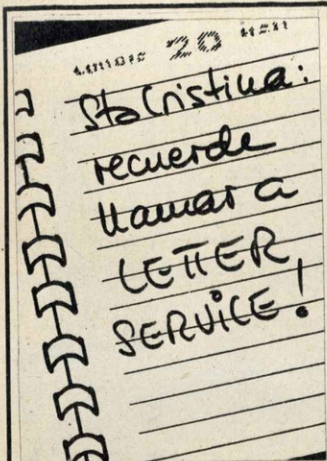 20
Sta Cristina:
recuerde
llamar a
LETTER
SERVICE!